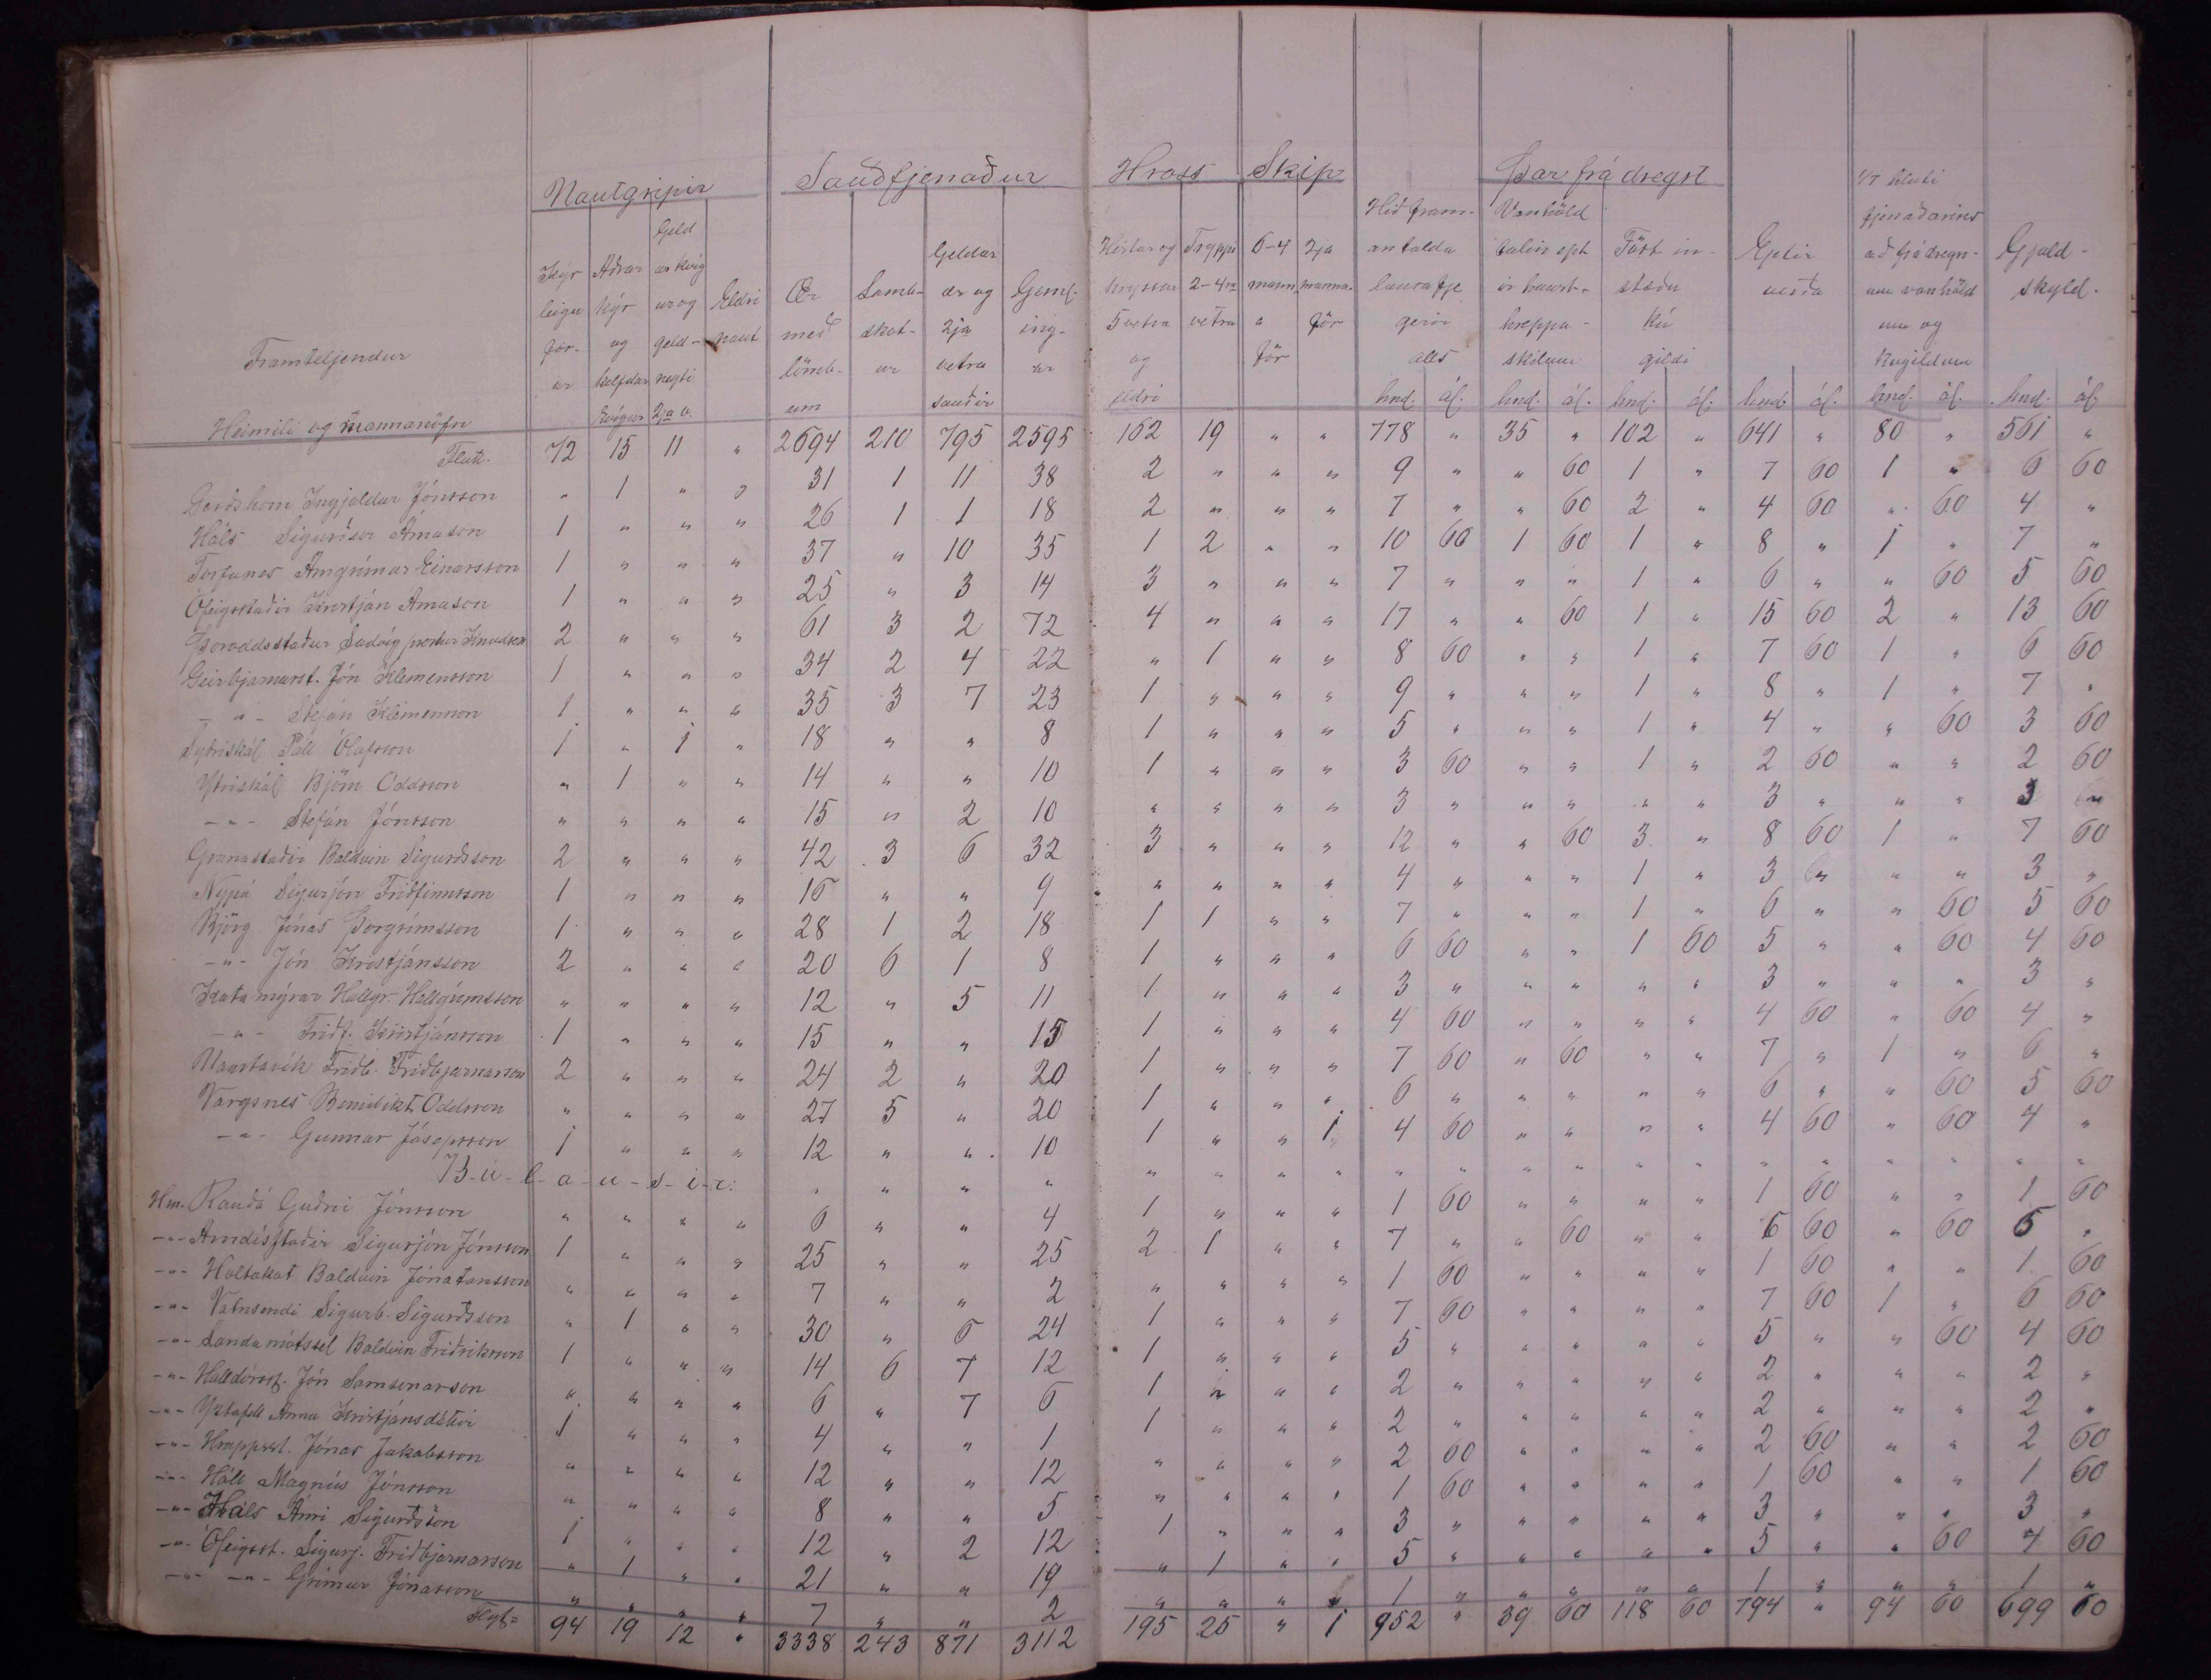 Nautgripir Sauðfjenaður Hross Skip Þar frá dregst 1/7 hluti
Framteljendur
Heimili og mannanöfn
Kýr leigu fær- ar
Aðrar kýr og kelfdar kvígur
Geld ar kvíg ur og geld- neyti 2ja v.
Eldri naut
Ær með lömb- um
Lamb- skot- ur
Geldar ær og 2ja vetra sauðir
Geml- ing- ar
Hestar og hryssur 5 vetra og eldri
Tryppi 2-4ra vetra
6-4 mann- a för
2ja manna- för
Hið fram- antalda lausafje gerir alls
Vanhöld talin ept ir haust- hreppa- skilum
Föst in- stæðu kú gildi
Eptir verða
1/7 hluti fjenaðarins að frá dregn- um vanhöld um og kúgildum
Gjald- skyld-
hnd. ál. hnd. ál. hnd. ál. hnd. ál. hnd. ál. hnd. ál.
Flutt. 72 15 11 " 2694 210 795 2595 162 19 " " 778 " 35 " 102 " 641 " 80 " 561 "
Garðshorn Ingjaldur Jónsson " 1 " " 31 1 11 38 2 " " " 9 " " 60 1 " 7 60 1 " 6 60
Háls Sigurður Árnason 1 " " " 26 1 1 18 2 " " " 7 " " 60 2 " 4 60 " 60 4 "
Torfunes Arngrímur Einarsson 1 " " " 37 " 10 35 1 2 " " 10 60 1 60 1 " 8 " 1 " 7 "
Ófeigsstaðir Kristján Árnason 1 " " " 25 " 3 14 3 " " " 7 " " " 1 " 6 " " 60 5 60
Þóroddsstaður Ludvig prestur Knudsen 2 " " " 61 3 2 72 4 " " " 17 " " 60 1 " 15 60 2 " 13 60
Geirbjarnarst. Jón Klemensson 1 " " " 34 2 4 22 " 1 " " 8 60 " " 1 " 7 60 1 " 6 60
- " - Stefán Klemensson 1 " " " 35 3 7 23 1 " " " 9 " " " 1 " 8 " 1 " 7 "
Syðriskál Páll Ólafsson 1 " 1 " 18 " " 8 1 " " " 5 " " " 1 " 4 " " 60 3 60
Ytriskál Björn Oddsson " 1 " " 14 " " 10 1 " " " 3 60 " " 1 " 2 60 " " 2 60
- " - Stefán Jónsson " " " " 15 " 2 10 " " " " 3 " " " " " 3 " " " 3 "
Granastaðir Baldvin Sigurðsson 2 " " " 42 3 6 32 3 " " " 12 " " 60 3 " 8 60 1 " 7 60
Nýpá Sigurjón Friðfinnsson 1 " " " 16 " " 9 " " " " 4 " " " 1 " 3 " " " 3 "
Björg Jónas Þorgrímsson 1 " " " 28 1 2 18 1 1 " " 7 " " " 1 " 6 " " 60 5 60
- " - Jón Kristjánsson 2 " " " 20 6 1 8 1 " " " 6 60 " " 1 60 5 " " 60 4 60
Kotamýrar Hallgr. Hallgrímsson " " " " 12 " 5 11 1 " " " 3 " " " " " 3 " " " 3 "
- " - Friðf. Kristjánsson 1 " " " 15 " " 15 1 " " " 4 60 " " " " 4 60 " 60 4 "
Naustavík Friðb. Friðbjarnarson 2 " " " 24 2 " 20 1 " " " 7 60 " 60 " " 7 " 1 " 6 "
Vargsnes Benidikt Oddsson " " " " 27 5 " 20 1 " " " 6 " " " " " 6 " " 60 5 60
- " - Gunnar Jósepsson 1 " " " 12 " " 10 1 " " 1 4 60 " " " " 4 60 " 60 4 "
B-ú-l-a-u-s-i-r: " " " " " " " " " " " " " " " " " " " "
Hm. Rauðá Guðni Jónsson " " " " 6 " " 4 1 " " " 1 60 " " " " 1 60 " " 1 60
- " - Arndísstaðir Sigurjón Jónsson 1 " " " 25 " " 25 2 1 " " 7 " " 60 " " 6 60 " 60 6 "
- " - Holtakot Baldvin Jónatansson " " " " 7 " " 2 " " " " 1 60 " " " " 1 60 " " 1 60
- " - Vatnsendi Sigurb. Sigurðsson " 1 " " 30 " 6 24 1 " " " 7 60 " " " " 7 60 1 " 6 60
- " - Landamótssel Baldvin Friðriksson 1 " " " 14 6 7 12 1 " " " 5 " " " " " 5 " " 60 4 60
- " - Halldórsst. Jón Samsonarson " " " " 6 " 7 6 1 " " " 2 " " " " " 2 " " " 2 "
- " - Yztafell Anna Kristjánsdóttir 1 " " " 4 " " 1 1 " " " 2 " " " " " 2 " " " 2 "
- " - Hrappsst. Jónas Jakobsson " " " " 12 " " 12 " " " " 2 60 " " " " 2 60 " " 2 60
- " - Hóll Magnús Jónsson " " " " 8 " " 5 " " " " 1 60 " " " " 1 60 " " 1 60
- " - Háls Árni Sigurðsson 1 " " " 12 " 2 12 1 " " " 3 " " " " " 3 " " " 3 "
- " - Ófeigsst. Sigurj. Friðbjarnarson " 1 " " 21 " " 19 " 1 " " 5 " " " " " 5 " " 60 4 60
- " - - " - Grímur Jónasson " " " " 7 " " 2 " " " " 1 " " " " " 1 " " " 1 "
Flyt= 94 19 12 " 3338 243 871 3112 195 25 " 1 952 " 39 60 118 60 794 " 94 60 699 60